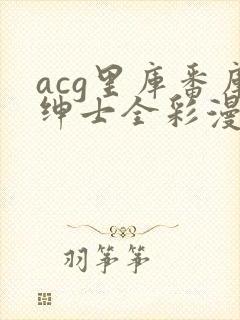 acg里库番库
绅士全彩漫
羽筝筝